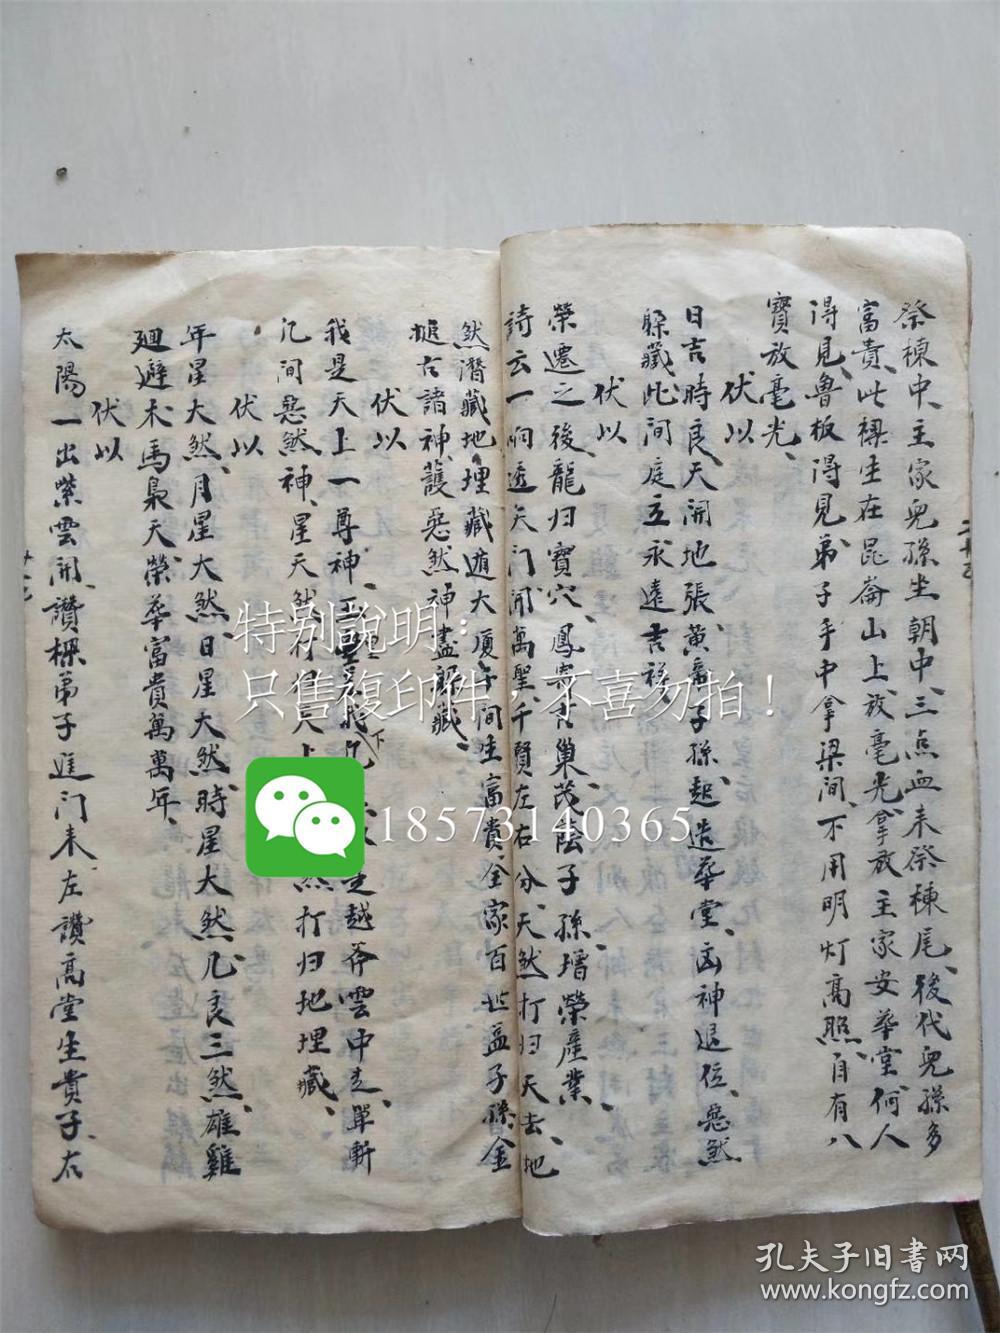 祭棟中、主家兒孫坐朝中、三点血来祭棟尾、後代兒孫多
富貴、此樑生在昆崙山上放毫光、拿放主家安華堂、何人
得見、魯板得見、弟子手中拿梁间、不用明灯高照、自有八
寶放毫光、
伏以
日吉時良、天開地張、黄斋子孫、起造華堂、凶神退位、惡煞
躲藏、此间庭立、永遠吉祥
伏以
榮遷之後、龍归寶穴、鳳 吉巢、茂蔭子孫、増榮產業、
詩云一响透天门、開萬聖千賢左右分、天煞打归天去、地
然潛藏地埋藏、遁大廈子间生富貴、全家百世益子孫、金
搥古諸神、護惡然神盡躲藏、
伏以
我是天上一尊神、玉皇 我下凡 越斧雲中走、單斬
凡间惡然神、星天然 上 煞打归地埋藏、
伏以
年星大然、月星大然、日星大然、時星大然、凡良三然、雄雞
廻避木馬梟天、榮華富貴萬萬年、
伏以
太陽一出紫雲開、讚樑弟子進门来、左讚高堂生貴子、右
特别說明：
只售複印件，不喜勿拍！
18573140365
孔夫子旧書网
www.kongfz.com